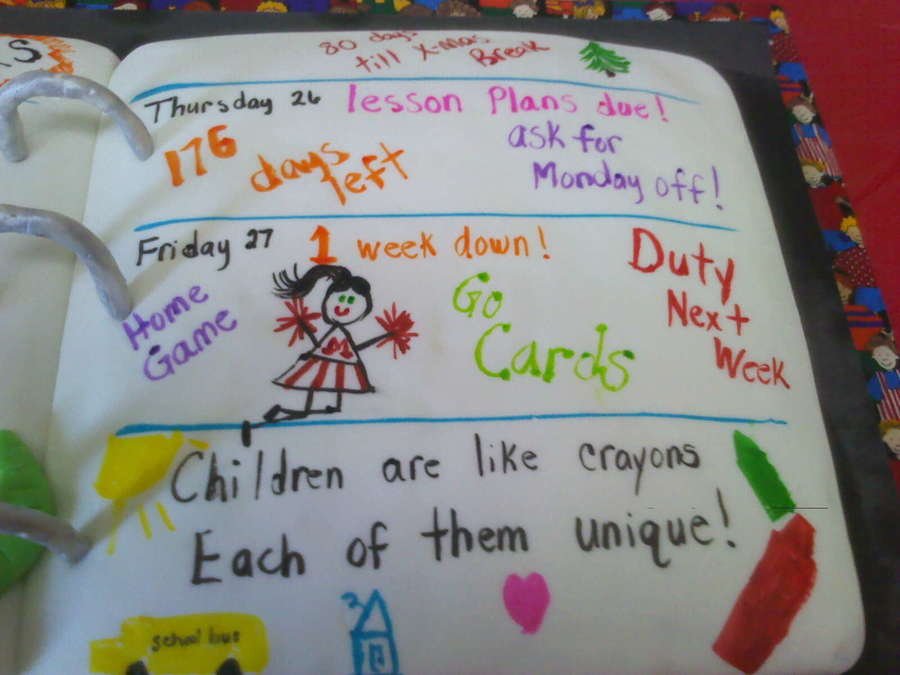 80 days
till X-mas
Break
Thursday 26
lesson Plans due!
176
days
left
ask for
Monday off!
Friday 27
1 week down!
Home
Game
M
Go
Cards
Duty
Next
Week
Children are like crayons
Each of them unique!
school bus